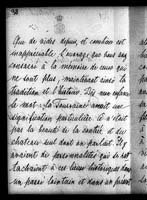 Que de aides depuis, et combien est
inappréciable l'ouvrage que vous avez
consacré à la mémoire de ceux qui
ne sont plus, maintenant dans la
tradition et l'histoire. Dès mon enfance
le mot "La Touraine" avait une
signification particulière et n'était
pas la beauté de la contrée et des
chateaux seul dont on parlait. Il y
avaient de personnalités qui se
rattachaient à ces lieux historiques dans
un passé lointain et dans un présent